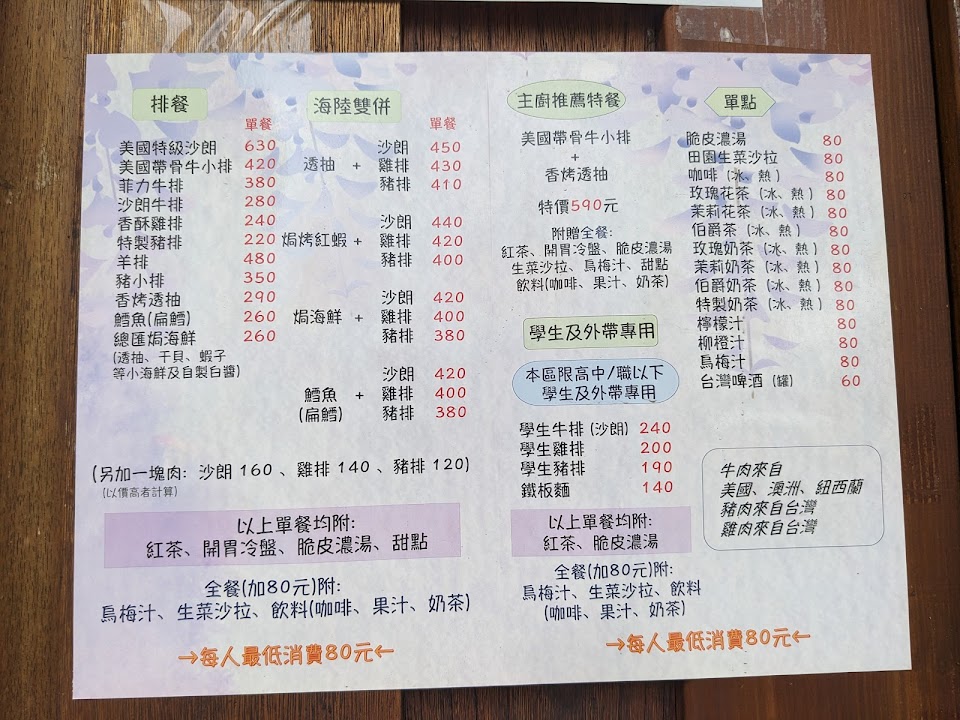 排餐
單餐
美國特級沙朗 630
美國帶骨牛小排 420
菲力牛排 380
沙朗牛排 280
香酥雞排 240
特製豬排 220
羊排 480
豬小排 350
香烤透抽 290
鱈魚(扁鱈) 260
總匯焗海鮮 260
(透抽、干貝、蝦子
等小海鮮及自製白醬)
海陸雙併
單餐
沙朗 450
透抽 + 雞排 430
豬排 410
沙朗 440
焗烤紅蝦 + 雞排 420
豬排 400
沙朗 420
焗海鮮 + 雞排 400
豬排 380
沙朗 420
鱈魚 + 雞排 400
(扁鱈) 豬排 380
(另加一塊肉: 沙朗 160 、雞排 140 、豬排 120)
(以價高者計算)
以上單餐均附:
紅茶、開胃冷盤、脆皮濃湯、甜點
全餐(加80元)附:
烏梅汁、生菜沙拉、飲料(咖啡、果汁、奶茶)
→每人最低消費80元←
主廚推薦特餐
美國帶骨牛小排
+
香烤透抽
特價590元
附贈全餐:
紅茶、開胃冷盤、脆皮濃湯
生菜沙拉、烏梅汁、甜點
飲料(咖啡、果汁、奶茶)
學生及外帶專用
本區限高中/職以下
學生及外帶專用
學生牛排 (沙朗) 240
學生雞排 200
學生豬排 190
鐵板麵 140
以上單餐均附:
紅茶、脆皮濃湯
全餐(加80元)附:
烏梅汁、生菜沙拉、飲料
(咖啡、果汁、奶茶)
→每人最低消費80元←
單點
脆皮濃湯 80
田園生菜沙拉 80
咖啡 (冰、熱) 80
玫瑰花茶 (冰、熱) 80
茉莉花茶 (冰、熱) 80
伯爵茶 (冰、熱) 80
玫瑰奶茶 (冰、熱) 80
茉莉奶茶 (冰、熱) 80
伯爵奶茶 (冰、熱) 80
特製奶茶 (冰、熱) 80
檸檬汁 80
柳橙汁 80
烏梅汁 80
台灣啤酒 (罐) 60
牛肉來自
美國、澳洲、紐西蘭
豬肉來自台灣
雞肉來自台灣